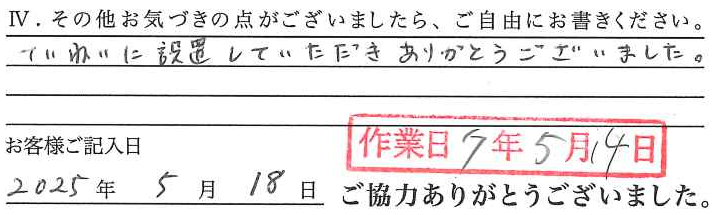 Ⅳ．その他お気づきの点がございましたら、ご自由にお書きください。
ていねいに設置していただきありがとうございました。
作業日 7年5月14日
お客様ご記入日
2025年 5月 18日 ご協力ありがとうございました。